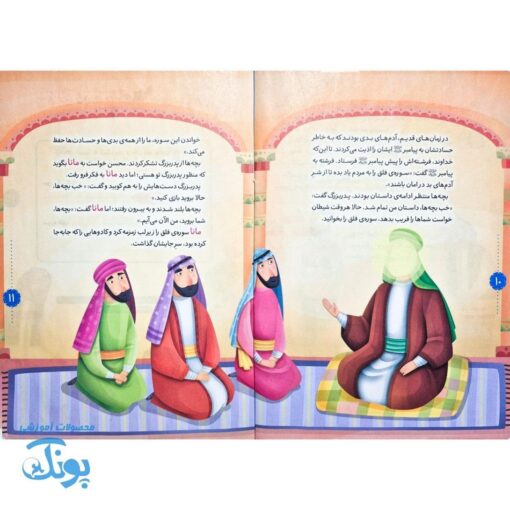 در زمان‌های قدیم، آدم‌های بدی بودند که به خاطر
حسادتشان به پیامبر ﷺ ایشان را اذیت می‌کردند. تا این‌که
خداوند، فرشته‌اش را پیش پیامبر ﷺ فرستاد. فرشته به
پیامبر ﷺ گفت: «سوره‌ی فلق را به مردم یاد بده تا از شرِ
آدم‌های بد در امان باشند.»
بچه‌ها منتظر ادامه‌ی داستان بودند. پدربزرگ گفت:
«خب بچه‌ها، داستان من تمام شد. حالا هر وقت شیطان
خواست شماها را فریب بدهد، سوره‌ی فلق را بخوانید.
۱۰
خواندن این سوره، ما را از همه‌ی بدی‌ها و حسادت‌ها حفظ
می‌کند.»
بچه‌ها از پدربزرگ تشکر کردند. محسن خواست به مانا بگوید
که منظور پدربزرگ تو هستی؛ اما دید مانا به فکر فرو رفت.
پدربزرگ دست‌هایش را به هم کوبید و گفت: «خب بچه‌ها،
حالا بروید بازی کنید.»
بچه‌ها بلند شدند و به بیرون رفتند؛ اما مانا گفت: «بچه‌ها،
شما بروید، من الآن می‌آیم.»
مانا سوره‌ی فلق را زیر لب زمزمه کرد و کادوهایی را که جابه‌جا
کرده بود، سر جایشان گذاشت.
۱۱
محصولات آموزشی
پونک